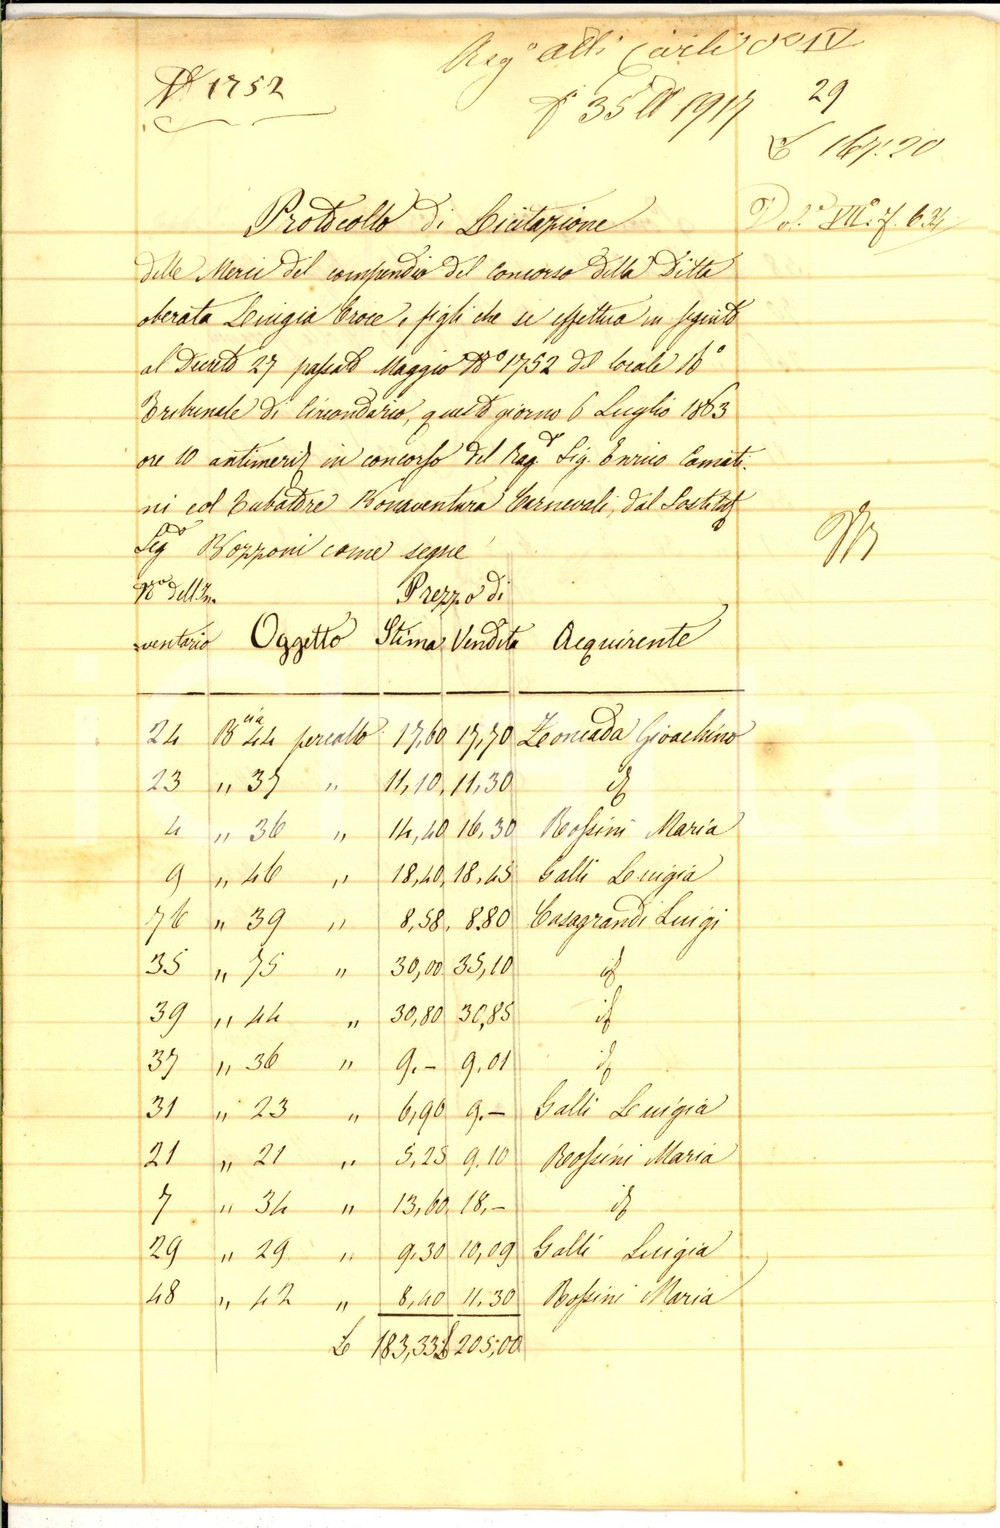 Reg° alli Carte N° IV
N° 1752
29
N° 35 1917
£ 167:20
Vol.° VII° f. 624
Protocollo di Licitazione
delle Merci del compendio del Concorso della Ditta
oberata Luigia Croce e figli che si effettua in seguito
al Decreto 27 passato Maggio N° 1752 del locale R°
Tribunale di Circondario, questo giorno 6 Luglio 1863
ore 10 antimerid in concorso del Rag.r Sig. Enrico Comati-
ni col Curatore Bonaventura Carnevali, dal Sostituto
Sig Bozzoni come segue
N° dell'In- Prezzo di
ventario Oggetto Stima Vendita Acquirente
24 Bcia 44 percallo 17,60 17,70 Zoncada Gioachino
23 " 37 " 11,10 11,30 id
4 " 36 " 14,40 16,30 Rossini Maria
9 " 46 " 18,40 18,45 Galli Luigia
76 " 39 " 8,58 8,80 Casagrandi Luigi
35 " 75 " 30,00 35,10 id
39 " 44 " 30,80 30,85 id
37 " 36 " 9.- 9,01 id
31 " 23 " 6,90 9.- Galli Luigia
21 " 21 " 5,25 9,10 Rossini Maria
7 " 34 " 13,60 18,- id
29 " 29 " 9,30 10,09 Galli Luigia
48 " 42 " 8,40 11,30 Rossini Maria
£ 183,33 £ 205,00